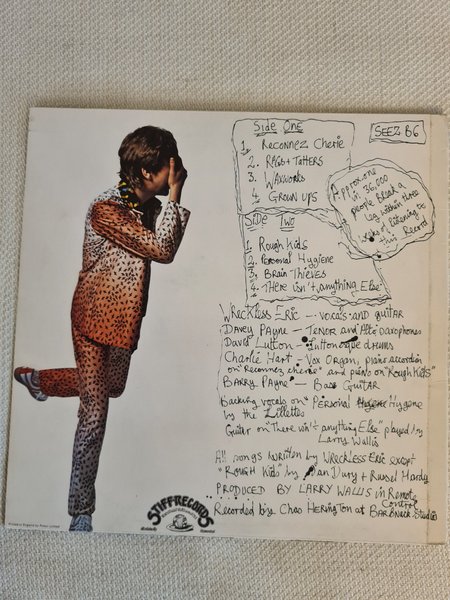 Side One
1. Reconnez Cherie
2. RAGS + TATTERS
3. WAXWORKS
4. GROWN UPS
SEEZ B6
Approx. one
in 36,000
people break a
leg within three
of listening to
this Record
SIDE TWO
1. Rough Kids
2. Personal Hygiene
3. Brain Thieves
4. There isn't anything Else
WRECKLESS ERIC — VOCALS AND guitar
DAVEY PAYNE — TENOR and Alto saxophones
David Lutton — Luttonesque drums
Charlie Hart — Vox Organ, piano accordion
on "Reconnez cherie" and piano on "Rough Kids"
BARRY PAYNE — Bass Guitar
Backing vocals on "Personal Hygiene
by the Lillettes
Guitar on "There isn't anything Else" played by
Larry Wallis
All songs written by WRECKLESS ERIC except
"ROUGH KIDS" by Ian Dury + Russel Hardy
PRODUCED BY LARRY WALLIS in Remote
Control
Recorded by Chas HERINGTON at BARNACK Studio
STIFF RECORDS